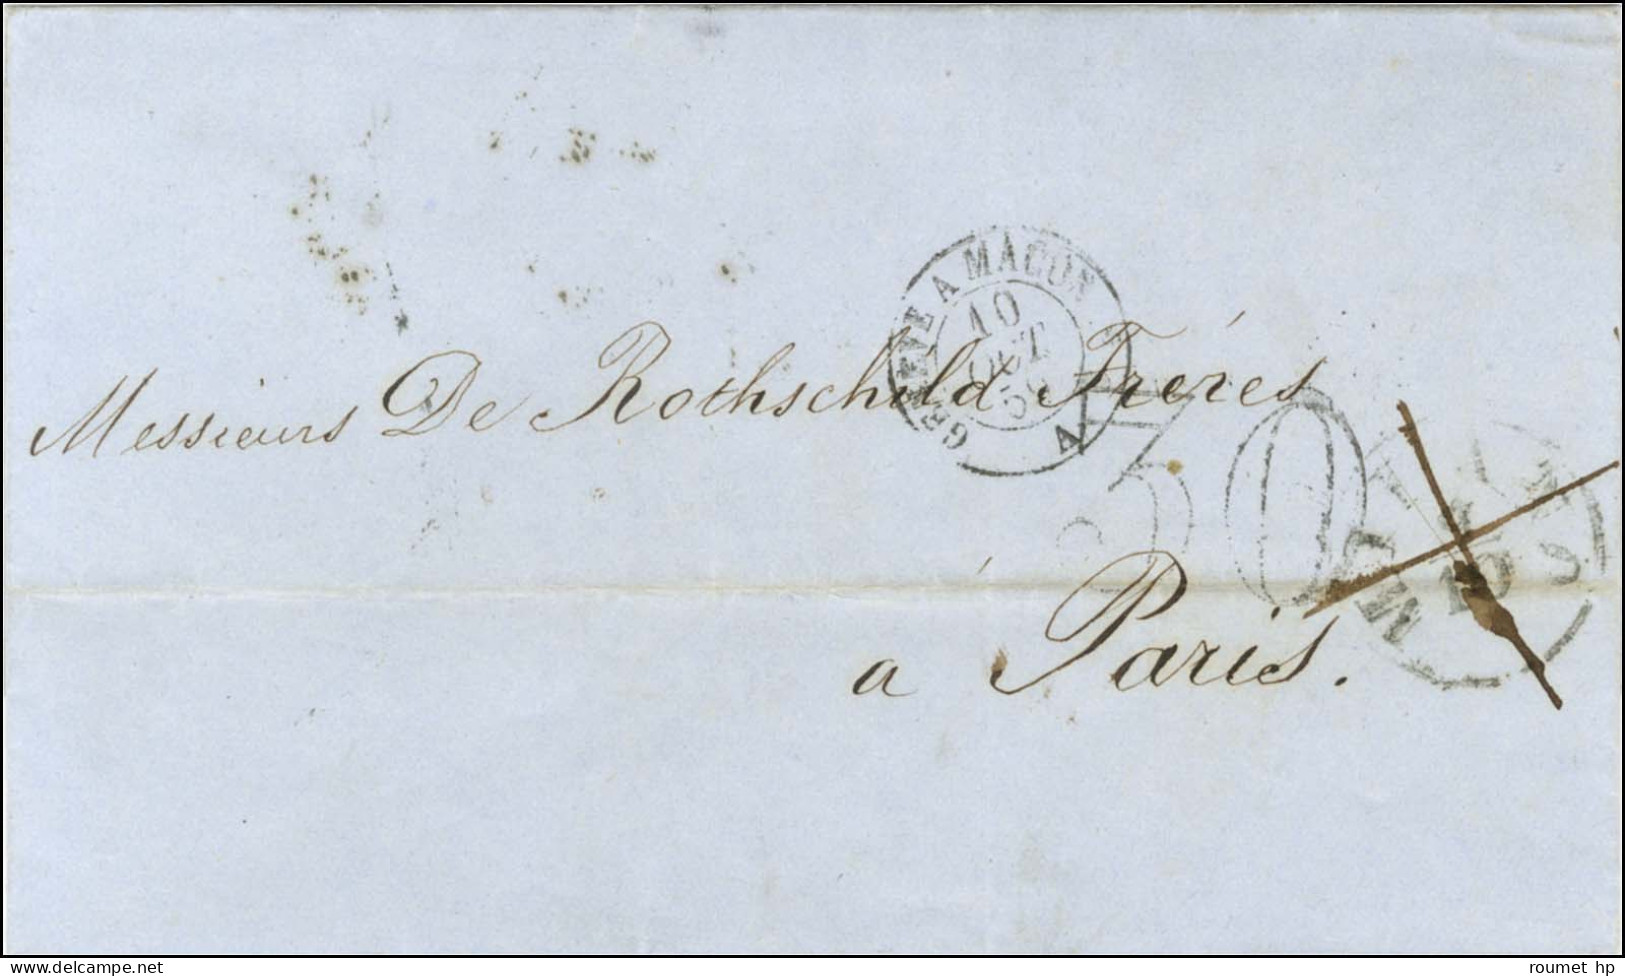 GENÈVE A MACON
10
OCT
Messieurs De Rothschild Frères
30
10
à Paris.
www.delcampe.net
roumet_hp